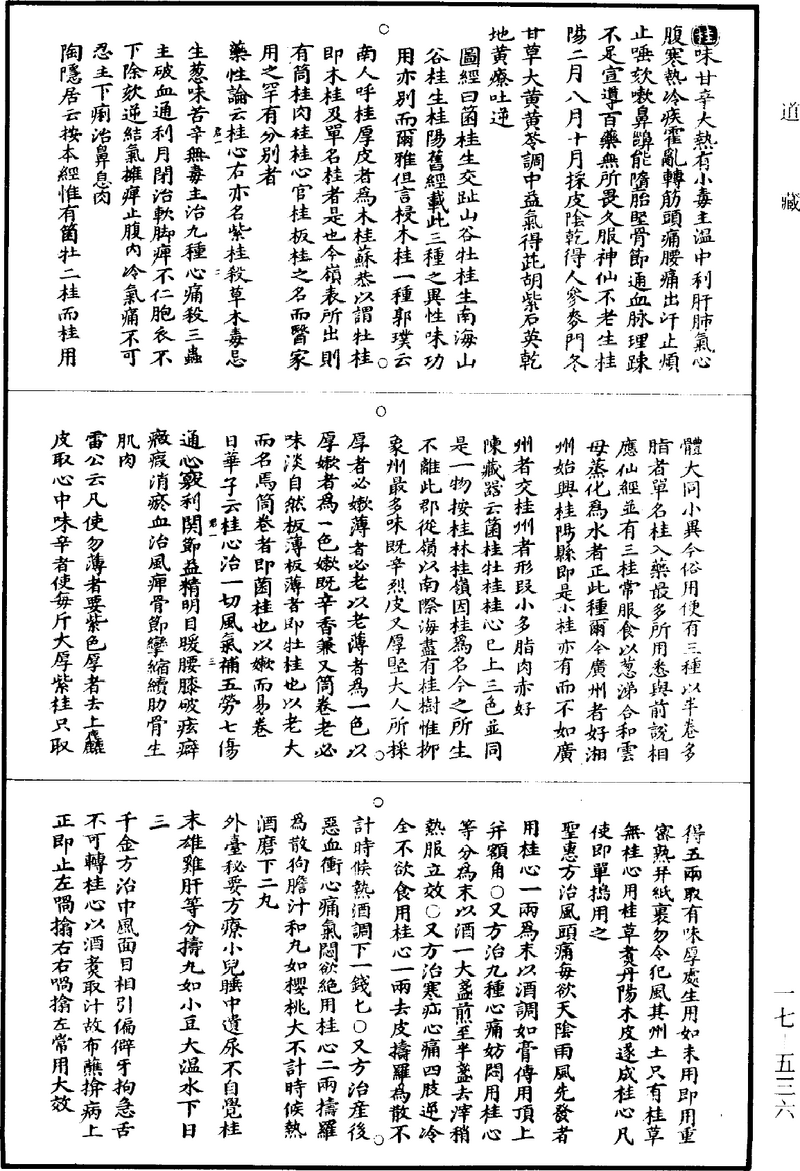 道藏
桂味甘辛大熱有小毒主溫中利肝肺氣心
腹寒熱冷疾霍亂轉筋頭痛腰痛出汗止煩
止唾欬嗽鼻齆能墮胎堅骨節通血脉理踈
不足宣導百藥無所畏久服神仙不老生桂
陽二月八月十月採皮陰乾得人參麥門冬
甘草大黃黃芩調中益氣得茈胡紫石英乾
地黃療吐逆
圖經曰箘桂生交趾山谷牡桂生南海山
谷桂生桂陽舊經載此三種之異性味功
用亦別而爾雅但言梫木桂一種郭璞云
南人呼桂厚皮者為木桂蘇恭以謂牡桂
即木桂及單名桂者是也今嶺表所出則
有筒桂肉桂桂心官桂板桂之名而醫家
用之罕有分別者
藥性論云桂心君一右亦名紫桂殺草木毒忌二
生葱味苦辛無毒主治九種心痛殺三蟲
主破血通利月閉治軟脚痺不仁胞衣不
下除欬逆結氣擁痺止腹內冷氣痛不可
忍主下痢治鼻息肉
陶隱居云按本經惟有箘牡二桂而桂用
體大同小異今俗用便有三種以半卷多
脂者單名桂入藥最多所用悉與前說相
應仙經並有三桂常服食以葱涕合和雲
母蒸化為水者正此種爾今廣州者好湘
州始興桂陽縣即是小桂亦有而不如廣
州者交桂州者形段小多脂肉亦好
陳藏器云菌桂牡桂桂心已上三色並同
是一物按桂林桂嶺因桂為名今之所生
不離此郡從嶺以南際海盡有桂樹惟柳
象州最多味既辛烈皮又厚堅大人所採
厚者必嫩薄者必老以老薄者為一色以
厚嫩者為一色嫩既辛香兼又筒卷老必
味淡自然板薄板薄者即牡桂也以老大
而名焉筒卷者即菌桂也以嫩而易卷
日華子云桂心君一治一切風氣補五勞七傷三
通心竅利関節益精明目暖腰膝破痃癖
癥瘕消瘀血治風痺骨節攣縮續肋骨生
肌肉
雷公云凡使勿薄者要紫色厚者去上麤
皮取心中味辛者使每斤大厚紫桂只取
得五兩取有味厚處生用如末用即用重
密熟并紙裹勿令犯風其州土只有桂草
無桂心用桂草煑丹陽木皮遂成桂心凡
使即單搗用之
聖惠方治風頭痛每欲天陰雨風先發者
用桂心一兩為末以酒調如膏傅用頂上
并額角○又方治九種心痛妨悶用桂心
等分為末以酒一大盞煎至半盞去滓稍
熱服立效○又方治寒疝心痛四肢逆冷
全不欲食用桂心一兩去皮擣羅為散不
計時候熱酒調下一錢匕○又方治産後
惡血衝心痛氣悶欲絕用桂心二兩擣羅
為散狗膽汁和丸如櫻桃大不計時候熱
酒磨下二丸
外臺秘要方療小兒睡中遺尿不自覺桂
末雄雞肝等分擣丸如小豆大溫水下日
三
千金方治中風面目相引偏僻牙拘急舌
不可轉桂心以酒煑取汁故布蘸搨病上
正即止左喎搨右右喎搨左常用大效
一七–五三六